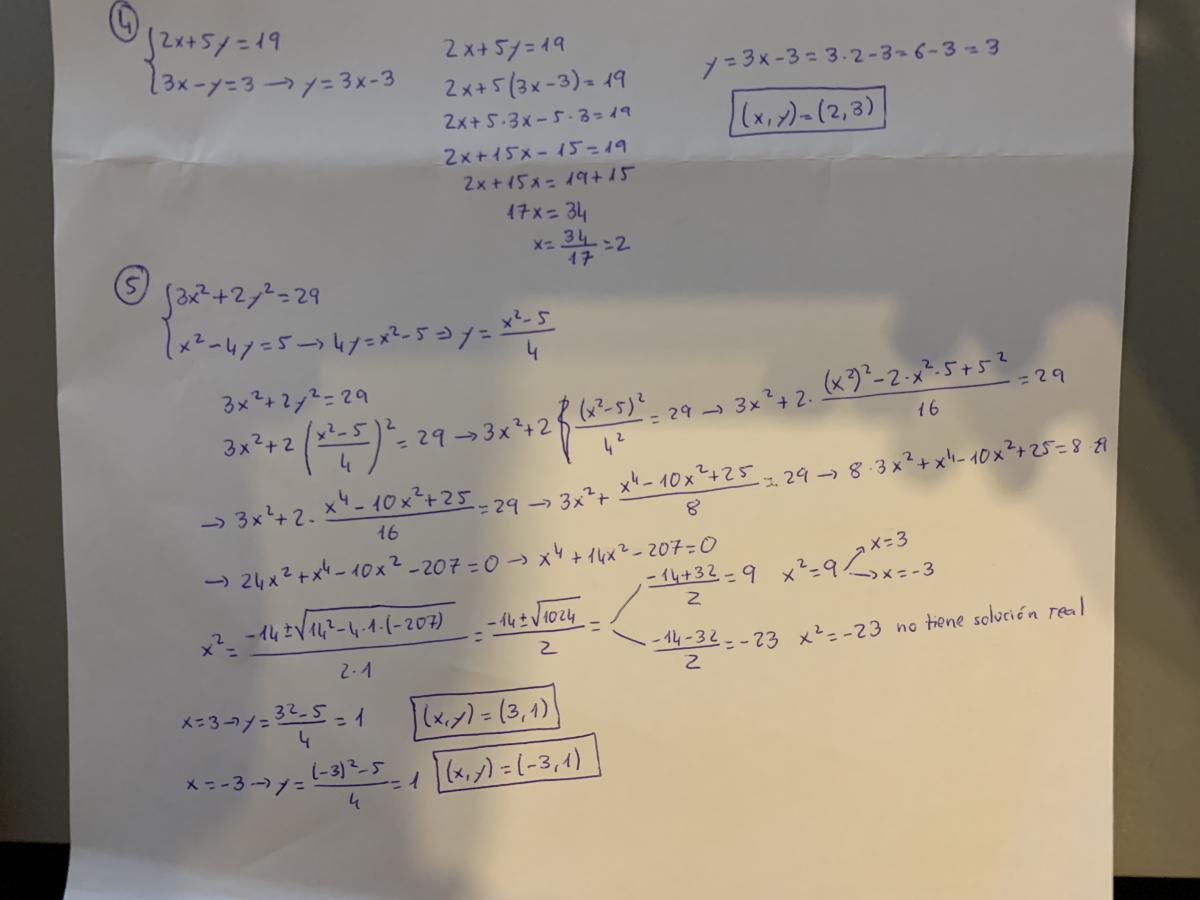 ④ {2x+5y=19
3x-y=3 → y=3x-3
2x+5y=19
2x+5(3x-3)=19
2x+5·3x-5·3=19
2x+15x-15=19
2x+15x=19+15
17x=34
x=34/17=2
y=3x-3=3·2-3=6-3=3
(x,y)=(2,3)
⑤ {3x²+2y²=29
x²-4y=5 → 4y=x²-5 ⇒ y=(x²-5)/4
3x²+2y²=29
3x²+2((x²-5)/4)²=29 → 3x²+2 (x²-5)²/4²=29 → 3x²+2·((x²)²-2·x²·5+5²)/16=29
→ 3x²+2·(x⁴-10x²+25)/16=29 → 3x²+(x⁴-10x²+25)/8=29 → 8·3x²+x⁴-10x²+25=8·29
→ 24x²+x⁴-10x²-207=0 → x⁴+14x²-207=0
x²=(-14±√(14²-4·1·(-207)))/(2·1)=(-14±√1024)/2=
(-14+32)/2=9 x²=9 ↗ x=3
→ x=-3
(-14-32)/2=-23 x²=-23 no tiene solución real
x=3 → y=(3²-5)/4=1 (x,y)=(3,1)
x=-3 → y=((-3)²-5)/4=1 (x,y)=(-3,1)